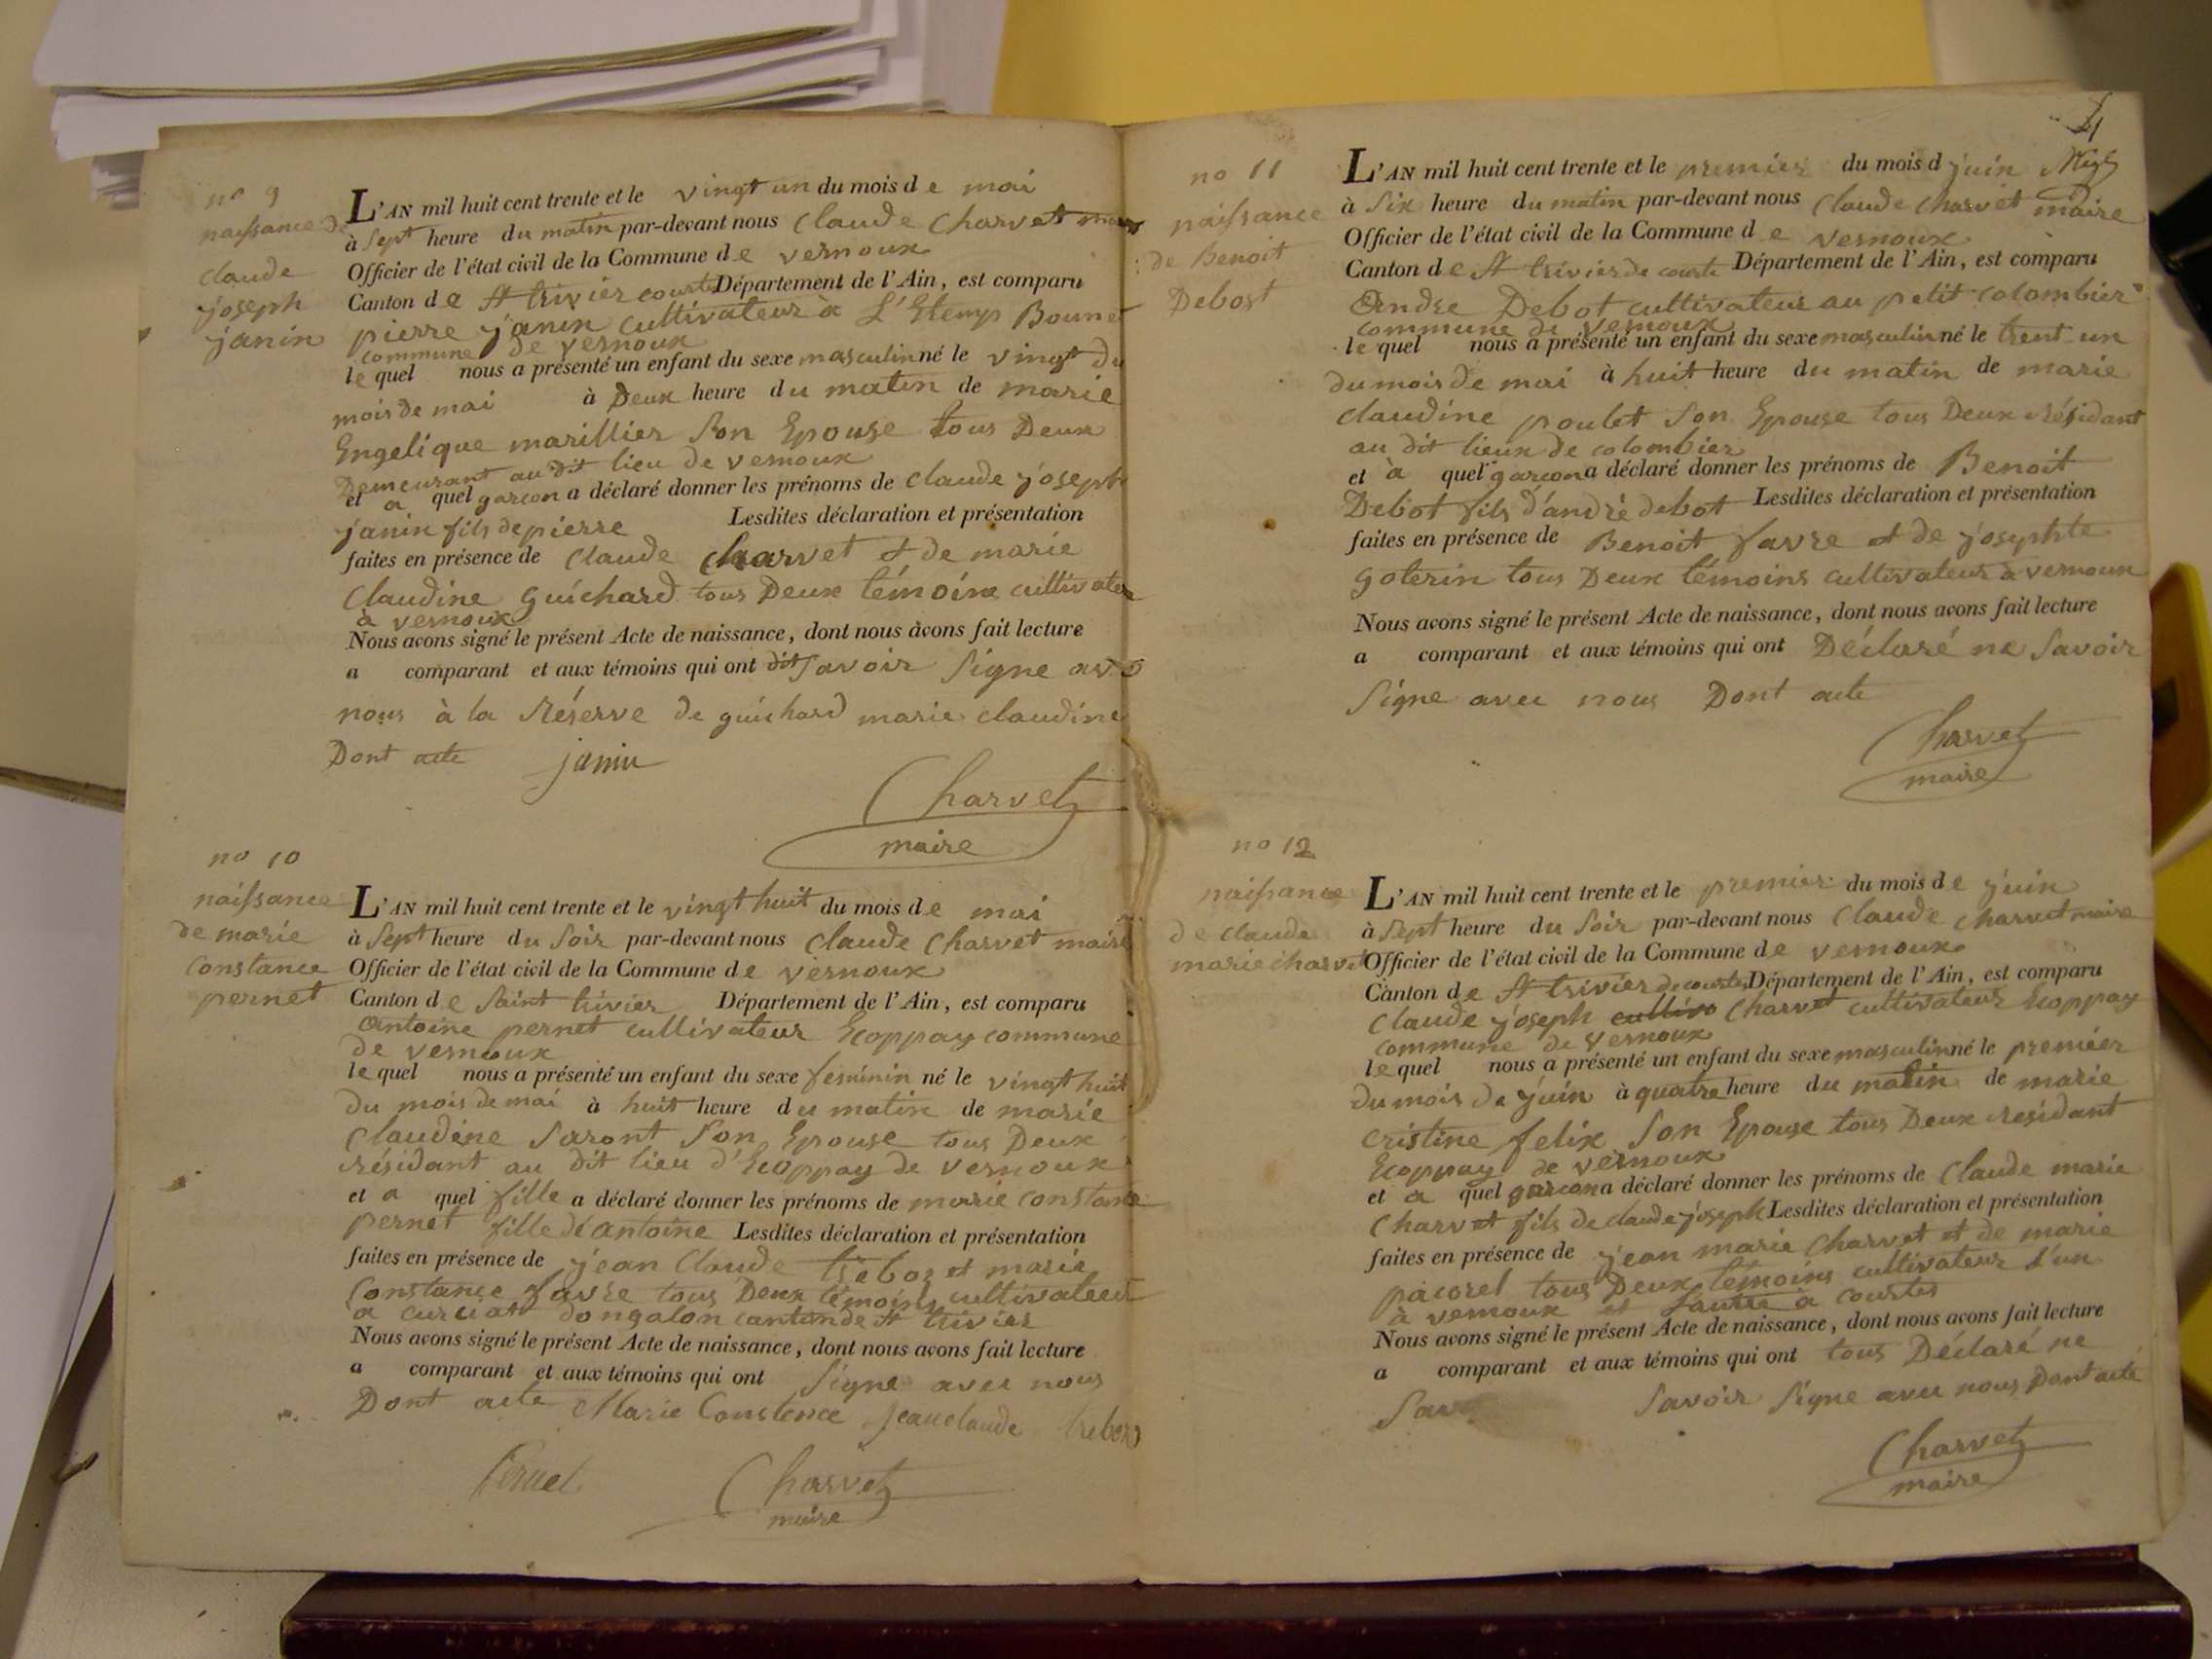 no 9
naissance de
claude
joseph
janin
L'AN mil huit cent trente et le vingt un du mois de mai
à Sept heure du matin par-devant nous claude Charvet maire
Officier de l'état civil de la Commune de vernoux
Canton de St trivier courtes Département de l'Ain, est comparu
pierre janin cultivateur à L'Etemp Bounet
commune de vernoux
lequel nous a présenté un enfant du sexe masculin né le vingt du
mois de mai à Deux heure du matin de marie
Engelique marillier Son Epouse tous Deux
Demeurant au dit lieu de vernoux
et a quel garcon a déclaré donner les prénoms de claude joseph
janin fils de pierre Lesdites déclaration et présentation
faites en présence de claude Charvet et de marie
Claudine guichard tous Deux témoins cultivateur
à vernoux
Nous avons signé le présent Acte de naissance, dont nous avons fait lecture
a comparant et aux témoins qui ont dit Savoir Signe avec
nous à la Réserve de guichard marie claudine
Dont acte janin
Charvet
maire
no 10
naissance
de marie
Constance
pernet
L'AN mil huit cent trente et le vingt huit du mois de mai
à Sept heure du Soir par-devant nous Claude Charvet maire
Officier de l'état civil de la Commune de vernoux
Canton de Saint trivier Département de l'Ain, est comparu
antoine pernet cultivateur Ecoppay commune
de vernoux
lequel nous a présenté un enfant du sexe feminin né le vingt huit
du mois de mai à huit heure du matin de marie
Claudine Saront Son Epouse tous Deux
résidant au dit lieu d'Ecoppay de vernoux
et a quel fille a déclaré donner les prénoms de marie Constance
pernet fille de antoine Lesdites déclaration et présentation
faites en présence de jean Claude treboz et marie
Constance favre tous Deux témoins cultivateur
a curciat dongalon canton de St trivier
Nous avons signé le présent Acte de naissance, dont nous avons fait lecture
a comparant et aux témoins qui ont Signe avec nous
Dont acte Marie Constence Jean claude treboz
Pernet Charvet
maire
no 11
naissance
de Benoit
Debost
L'AN mil huit cent trente et le premier du mois d juin
à Six heure du matin par-devant nous Claude Charvet maire
Officier de l'état civil de la Commune de vernoux
Canton de St trivier de courte Département de l'Ain, est comparu
Andre Debot cultivateur au petit colombier
commune de vernoux
lequel nous a présenté un enfant du sexe masculin né le trent un
du mois de mai à huit heure du matin de marie
claudine poulet Son Epouse tous Deux résidant
au dit lieux de colombier
et à quel garcon a déclaré donner les prénoms de Benoit
Debot fils d'andré debot Lesdites déclaration et présentation
faites en présence de Benoit favre et de josephte
goterin tous Deux témoins cultivateur à vernoux
Nous avons signé le présent Acte de naissance, dont nous avons fait lecture
a comparant et aux témoins qui ont Déclaré ne Savoir
Signe avec nous Dont acte
Charvet
maire
no 12
naissance
de claude
marie charvet
L'AN mil huit cent trente et le premier du mois de juin
à Sept heure du Soir par-devant nous Claude Charvet maire
Officier de l'état civil de la Commune de vernoux
Canton de St trivier de courtes Département de l'Ain, est comparu
Claude joseph cultiva Charvet cultivateur Ecoppay
commune de vernoux
lequel nous a présenté un enfant du sexe masculin né le premier
du mois de juin à quatre heure du matin de marie
cristine felix Son Epouse tous Deux residant
Ecoppay de vernoux
et a quel garcon a déclaré donner les prénoms de Claude marie
Charvet fils de claude joseph Lesdites déclaration et présentation
faites en présence de jean marie Charvet et de marie
pacoret tous Deux témoins cultivateur l'un
à vernoux et Lautre a courtes
Nous avons signé le présent Acte de naissance, dont nous avons fait lecture
a comparant et aux témoins qui ont tous Déclaré ne
Sav Savoir Signe avec nous Dont acte
Charvet
maire